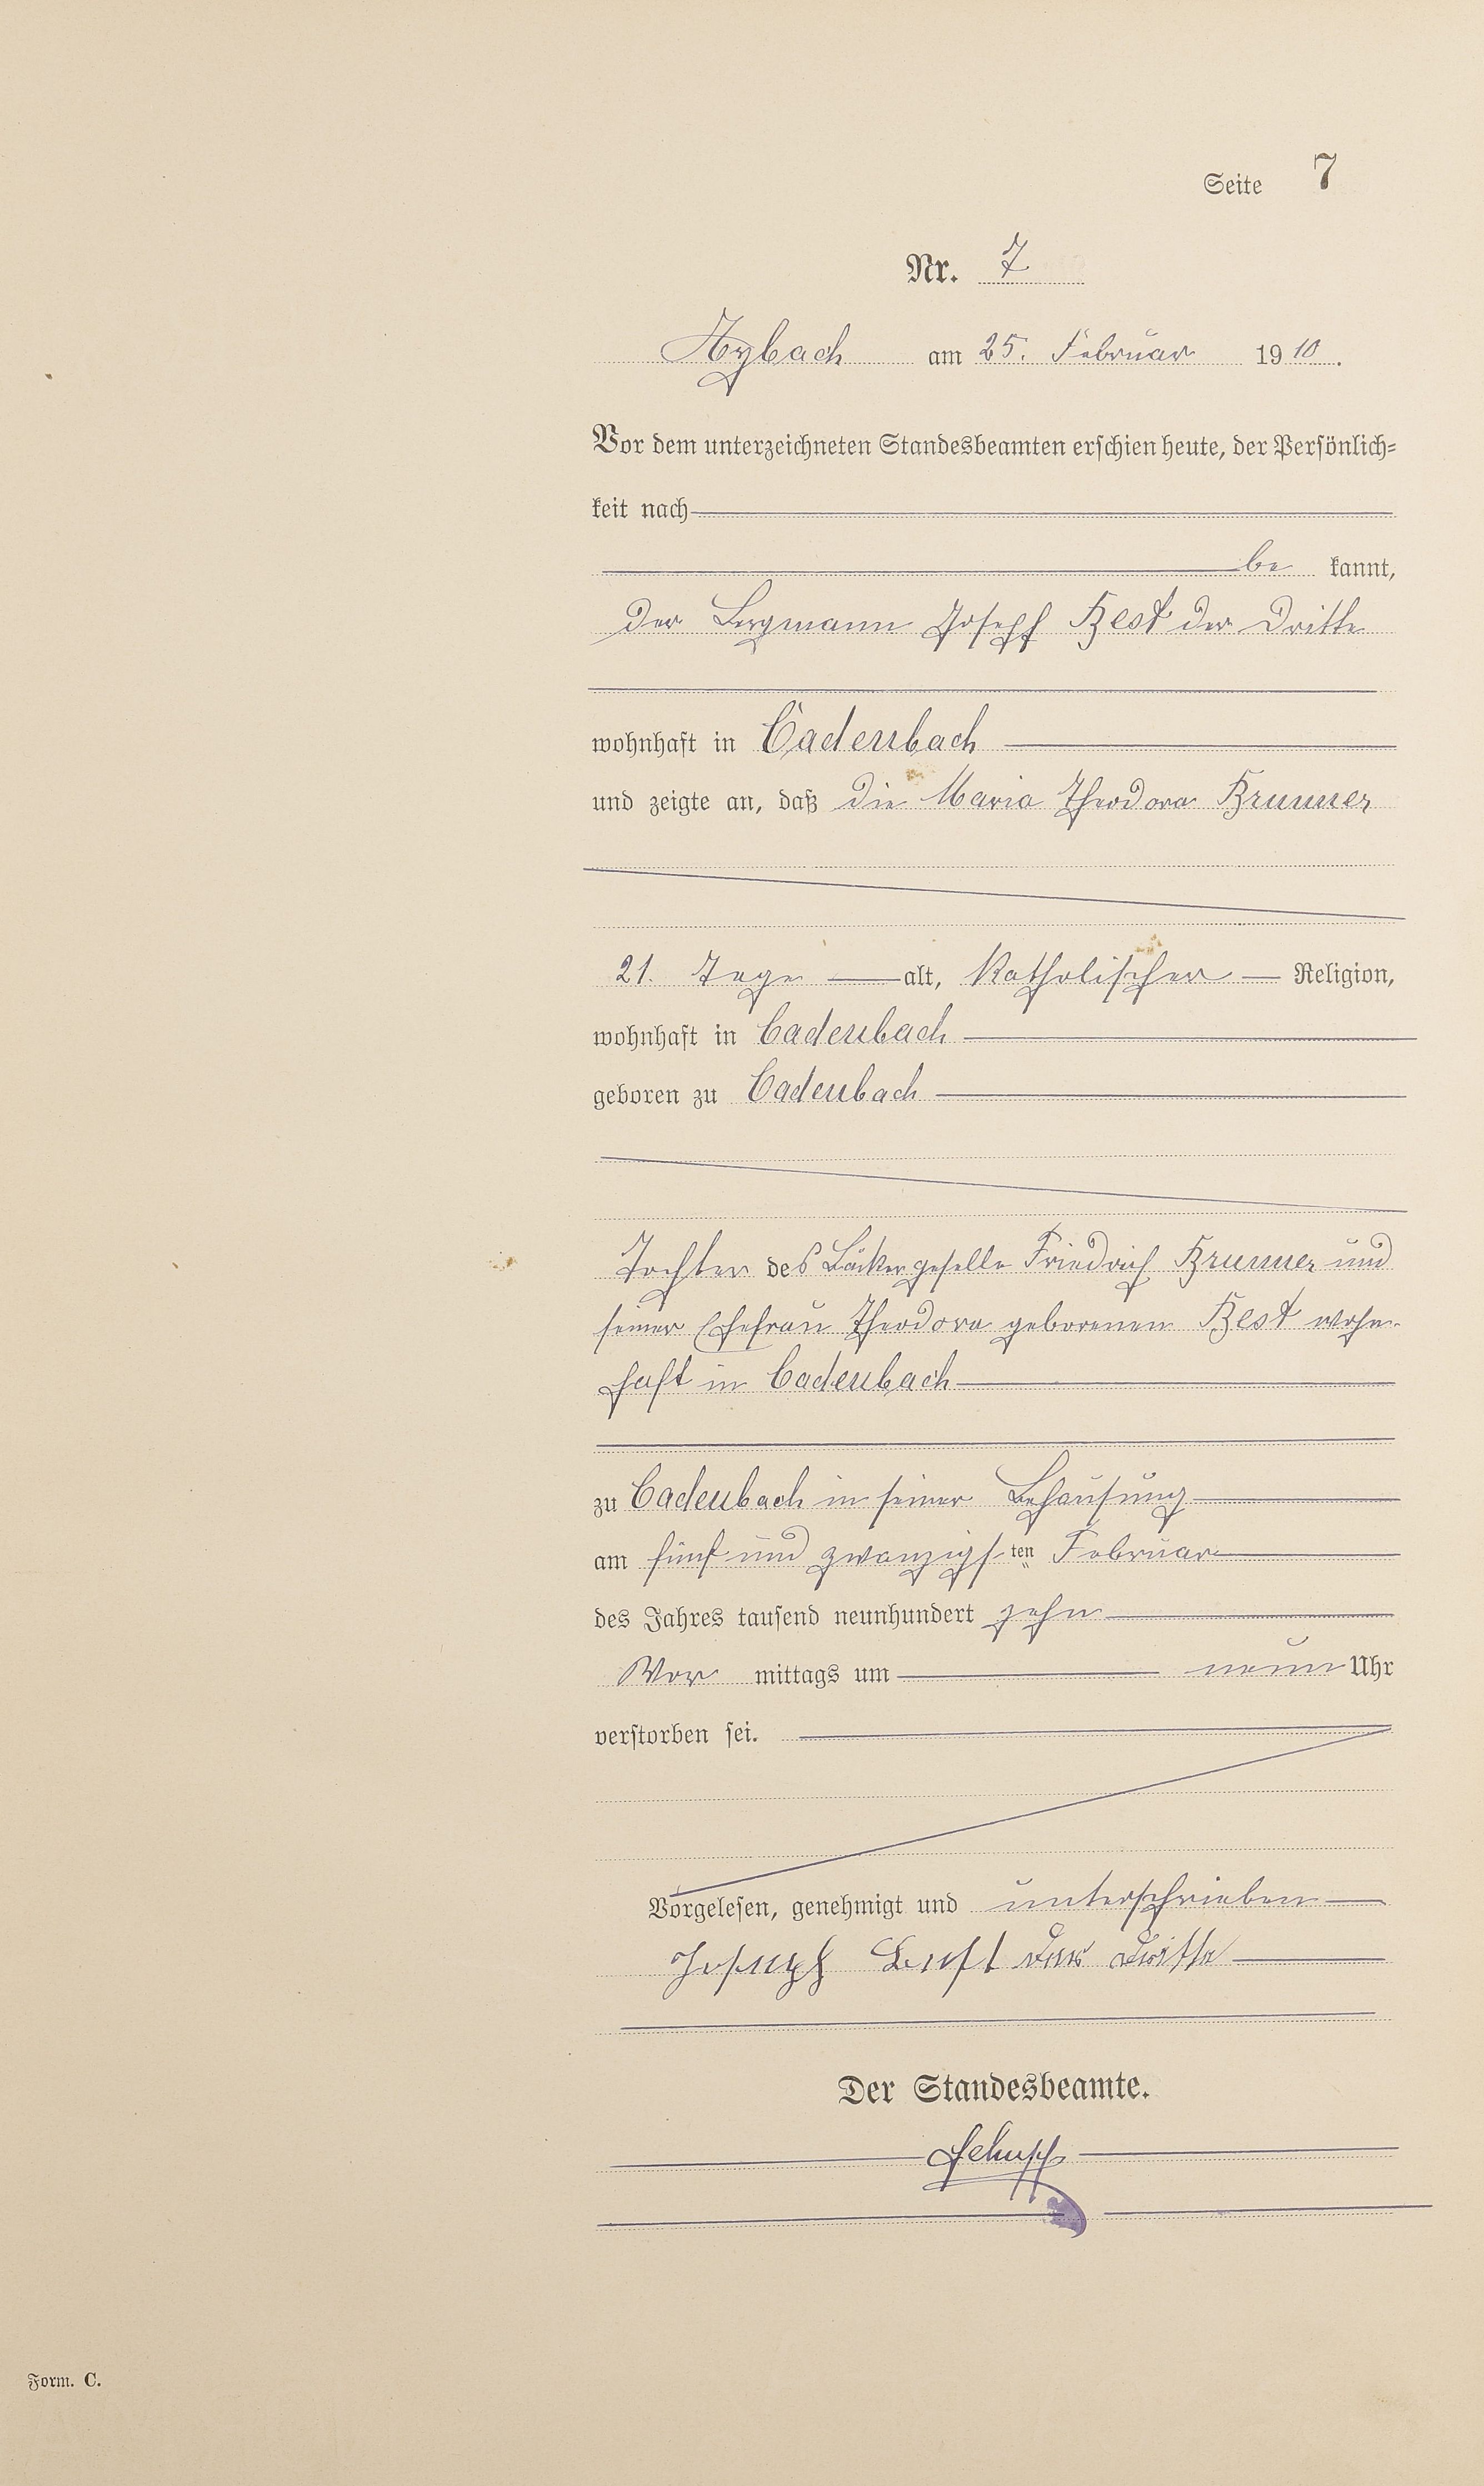 Seite 7
Nr. 7
am 25. Februar 1910.
Vor dem unterzeichneten Standesbeamten erschien heute, der Persönlich=
keit nach
be kannt,
der Bergmann Joseph Best der Dritte
wohnhaft in Cadenbach
und zeigte an, daß die Maria Theodora Brunner
21. Tage alt, katholischer Religion,
wohnhaft in Cadenbach
geboren zu Cadenbach
Tochter des Bäckergeselle Friedrich Brunner und
seiner Ehefrau Theodora geborenen Best wohn-
haft in Cadenbach
zu Cadenbach in seiner Behausung
am fünf und zwanzigsten Februar
des Jahres tausend neunhundert zehn
Vor mittags um neun Uhr
verstorben sei.
Vorgelesen, genehmigt und unterschrieben
Joseph Best der dritte
Der Standesbeamte.
Form. C.